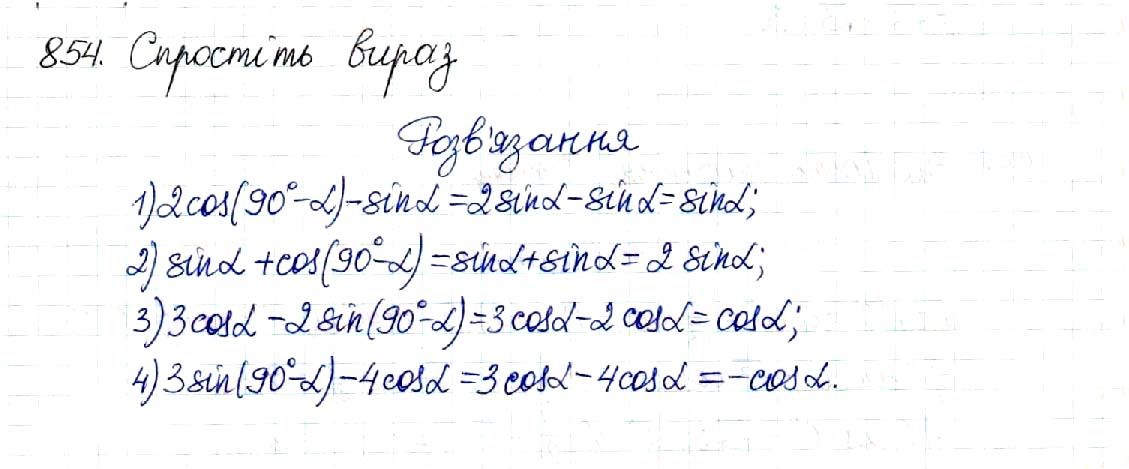 854. Спростіть вираз
Розв'язання
1) 2cos(90°-α)-sinα=2sinα-sinα=sinα;
2) sinα+cos(90°-α)=sinα+sinα=2sinα;
3) 3cosα-2sin(90°-α)=3cosα-2cosα=cosα;
4) 3sin(90°-α)-4cosα=3cosα-4cosα=-cosα.